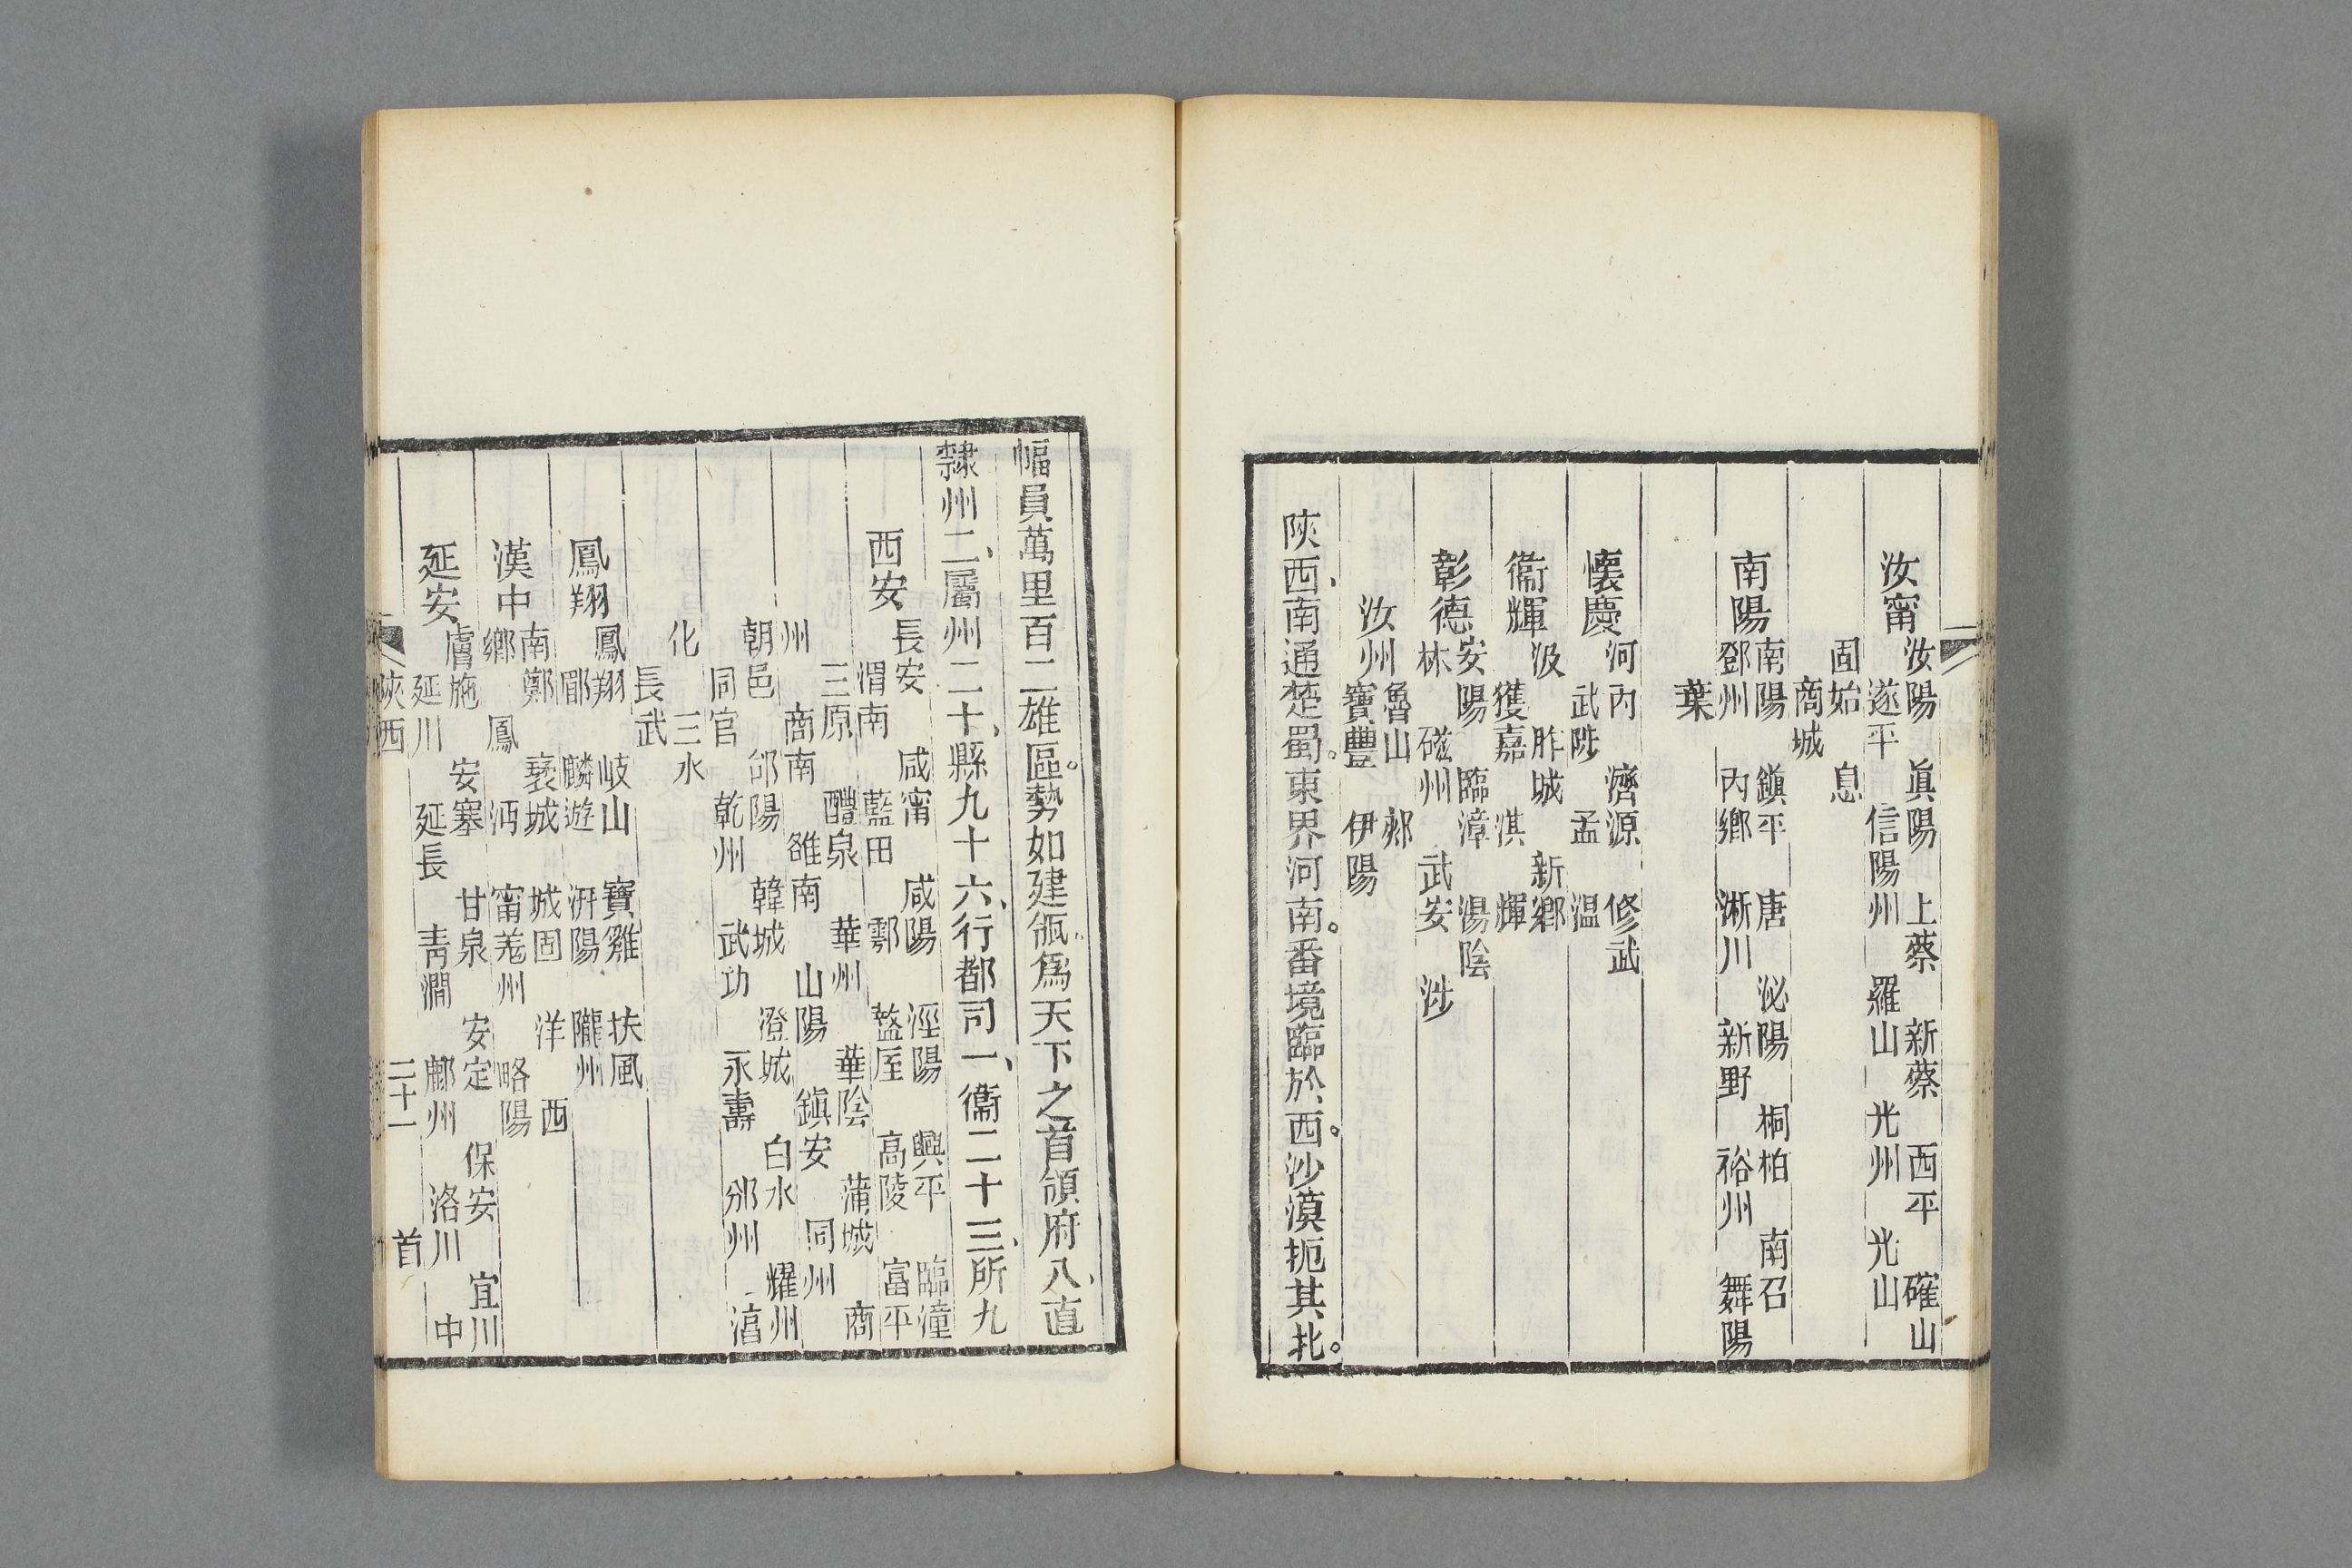 汝甯
汝陽 眞陽 上蔡 新蔡 西平 確山
遂平 信陽州 羅山 光州 光山
固始 息
商城
南陽
南陽 鎭平 唐 泌陽 桐柏 南召
鄧州 內鄉 淅川 新野 裕州 舞陽
葉
懷慶
河內 濟源 修武
武陟 孟 温
衞輝
汲 胙城 新鄉
獲嘉 淇 輝
彰德
安陽 臨漳 湯陰
林 磁州 武安 涉
汝州
魯山 郟
寶豐 伊陽
陝西、南通楚蜀。東界河南。番境臨於、西。沙漠扼其北。
幅員萬里百二雄區。勢如建瓴、爲天下之首領府八、直
隸州二、屬州二十、縣九十六、行都司一、衞二十三、所九
西安
長安 咸甯 咸陽 涇陽 興平 臨潼
渭南 藍田 鄠 盩厔 高陵 富平
三原 醴泉 華州 華陰 蒲城 商
州 商南 雒南 山陽 鎭安 同州
朝邑 郃陽 韓城 澄城 白水 耀州
同官 乾州 武功 永壽 邠州 滈
化 三水
長武
鳳翔
鳳翔 岐山 寶雞 扶風
郿 麟遊 汧陽 隴州
漢中
南鄭 褒城 城固 洋 西
鄉 鳳 沔 甯羗州 略陽
延安
膚施 安塞 甘泉 安定 保安 宜川
延川 延長 靑澗 鄜州 洛川 中
陝西 二十一 首